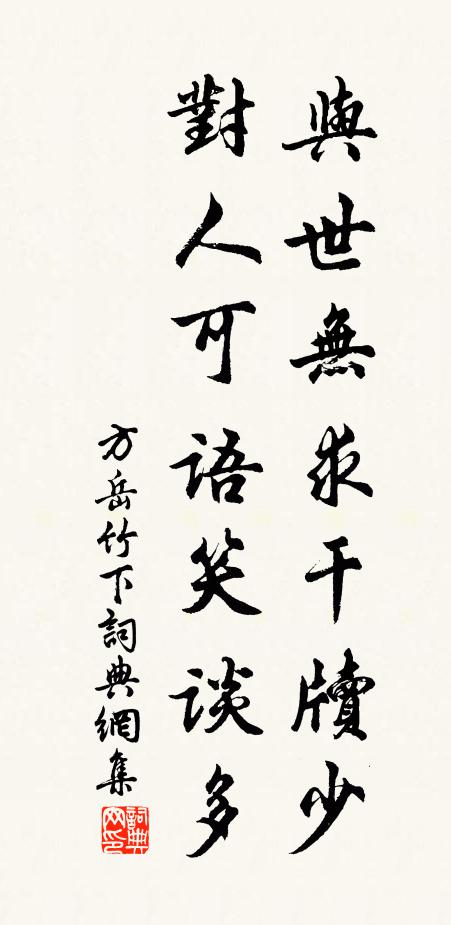 與世無求干牘少
對人可語笑談多
方岳竹下詞典網集
詞典网印